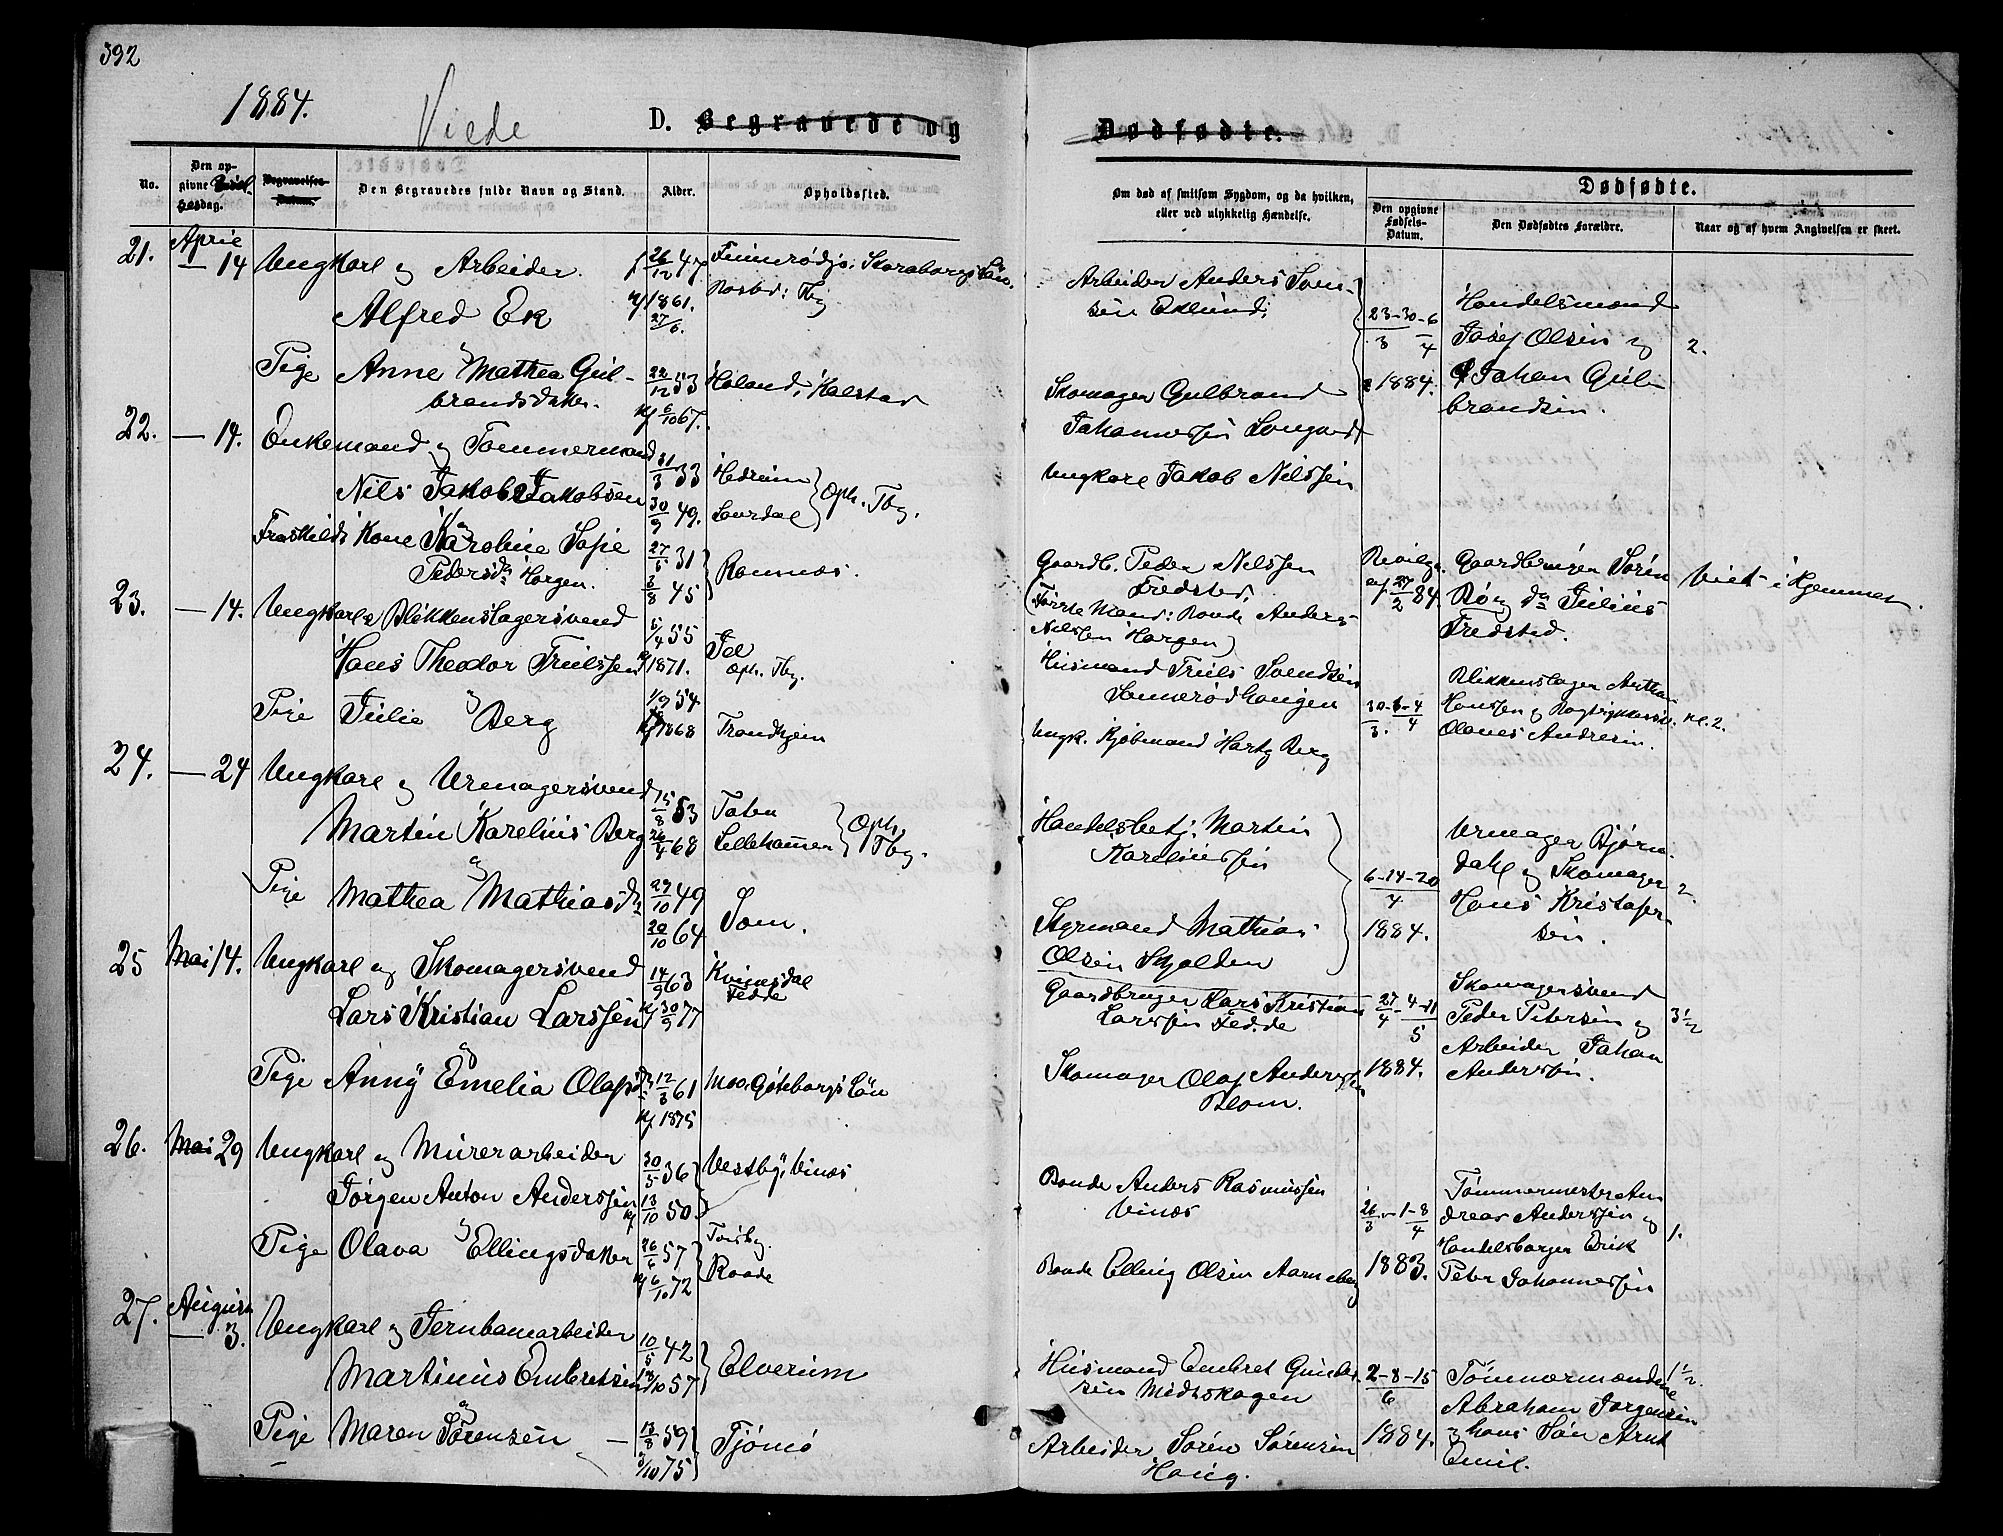 392
1884. Viede D. Begravede og Dødfødte.
No.
Den opgivne Dødsdag.
Begravelses-Datum.
Den Begravedes fulde Navn og Stand.
Alder.
Opholdssted.
Om død af smitsom Sygdom, og da hvilken,
eller ved ulykkelig Hændelse.
Dødfødte.
Den opgivne Fødsels-Datum.
Den Dødfødtes Forældre.
Naar og af hvem Angivelsen er skeet.
21. April 14 Ungkarl og Arbeider
Alfred Ek
26/12 47
1861.
27/6.
Finnerødja: Skaraborgs Län.
Bosted: Tbg
Arbeider Anders Svensen Eklund;
23-30-6
3 4
1884.
Handelsmænd
Josef Olsen og
Johan Gulbrandsen.
2.
Pige Anne Mathea Gulbrandsdatter.
22/12 53
kf 6/10 67.
Høland; Kalstad
Skomager Gulbrand
Johannessen
22. — 14. Enkemand og Tømmermand
Nils Jakob Jakobsen
31/3 33
30/9 49.
Hedrum
Laurdal
Oph. Tbg.
Ungkarl Jakob Nilssen
Fraskildt Kone Karoline Sofie
Pedersda Horgen.
27/5 31
3/8 45
Ramnæs.
Gaardb. Peder Nilssen
Fredsted;
(Første Mand: Bonde Anders
Nilssen Horgen)
Bevilg.
af 27/2 84.
Gaardbruger Søren
Bø og do Julius
Fredsted.
Viet i Hjemmet.
23. — 14. Ungkarl & Blikkenslagersvend
Hans Theodor Trulssen
5/4 55
1871.
Id
Oph. Tbg.
Husmand Truls Svendsen
Sannerødhaugen
30-6-4
3. 4
Blikkenslager
Hanssen og
Olaves Andresen.
kl. 2.
Pige Julie Berg
1/9 54
kf 1868
Trondhjem
Ungk. Kjøbmand Hartz Berg
24. — 24 Ungkarl og Urmagersvend
Martin Karelius Berg
15/8 53
26/4 68
Toten
Lillehammer
Oph. Tbg.
Handelsbetj. Martin
Kareliussen
6-14-20
4
1884.
Urmager Bjørndahl og Skomager
Hans Kristofersen.
2.
Pige Mathea Mathiasda
29/10 49
20/10 64
Sem.
Styrmand Mathias
Olsen Skjolden
25 Mai 14. Ungkarl og Skomagersvend
Lars Kristian Larssen
14/9 63
kf 30/9 77
Kvinesdal
Fedde
Gaardbruger Lars Kristian
Larssen Fedde
27-4-11
4 5
1884.
Skomagersvend
Peder Petersen og
Arbeider Johan
Anderssen.
3½
Pige Anny Emelia Olafsda
12/3 61
kf 1875
Moo, Göteborgs Län
Skomager Olaf Anderssen
Blom.
26. Mai 29 Ungkarl og Murerarbeider
Jørgen Anton Anderssen
30/5 36
kf 13/10 50
Vestby, Vinæs
Bonde Anders Rasmussen
Vinæs
26-1-8
3 4
1883.
Tømmermester Andreas Anderssen og
Handelsborger Erik
Peter Johannessen
1.
Pige Olava Ellingsdatter
26/6 57
kf 6/10 72
Torsby.
Raade
Bonde Elling Olsen Aarneberg
27. August
— 3. Ungkarl og Jernbanearbeider
Martinus Embretsen
10/5 42
13/10 57
Elverum
Husmand Embret Gundersen Midtskogen
2-8-15
6
1884.
Tømmermændene
Abraham Jørgensen
og hans Søn Arnt
Emil.
1½.
Pige Maren Sørensen —
13/8 59
3/10 75
Tjømø
Arbeider Søren Sørensen
Haug.